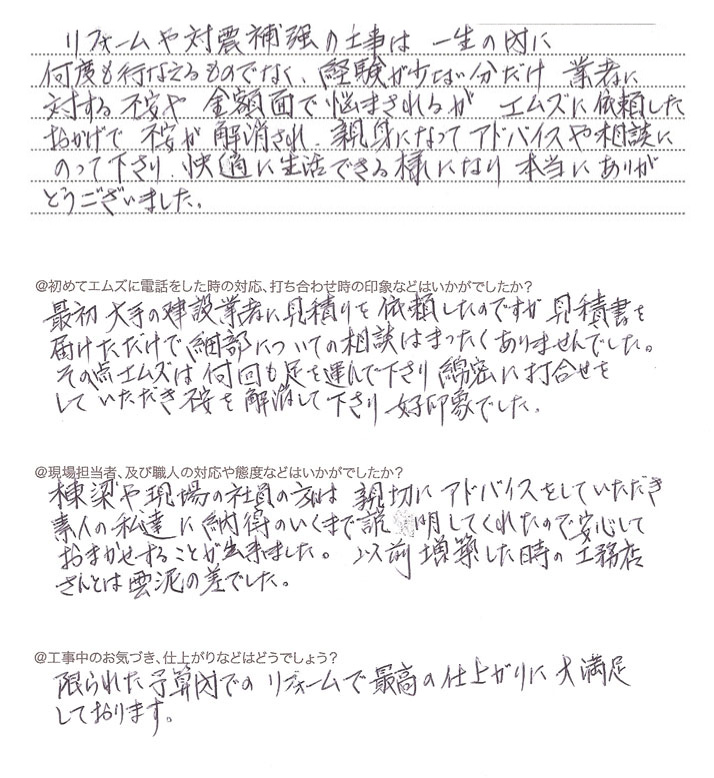 リフォームや対震補強の工事は 一生の内に
何度も行なえるものでなく、経験が少ない分だけ 業者に
対する不安や 金額面で悩まされるが エムズに依頼した
おかげで 不安が解消され、親身になってアドバイスや相談に
のって下さり、快適に生活できる様になり 本当にありが
とうございました。
@初めてエムズに電話をした時の対応、打ち合わせ時の印象などはいかがでしたか?
最初 大手の建設業者に見積りを依頼したのですが 見積書を
届けただけで細部についての相談はまったくありませんでした。
その点エムズは何回も足を運んで下さり綿密に打合せを
していただき不安を解消して下さり好印象でした。
@現場担当者、及び職人の対応や態度などはいかがでしたか?
棟梁や現場の社員の方は 親切にアドバイスをしていただき
素人の私達に納得のいくまで説明してくれたので安心して
おまかせすることが出来ました。以前増築した時の工務店
さんとは雲泥の差でした。
@工事中のお気づき、仕上がりなどはどうでしょう?
限られた予算内でのリフォームで最高の仕上がりに大満足
しております。